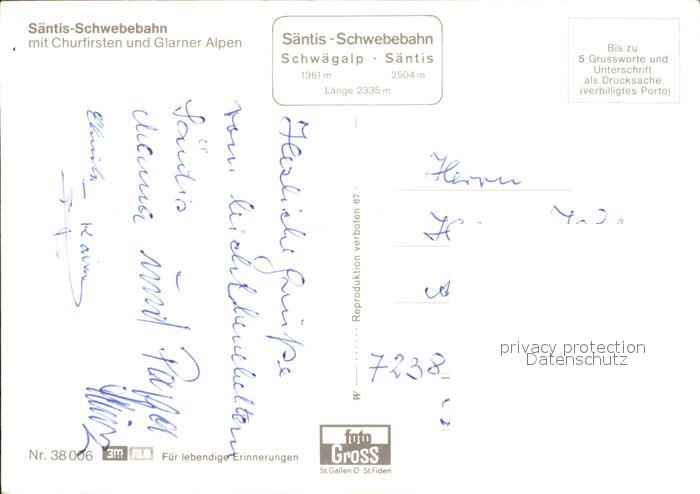 Säntis-Schwebebahn
mit Churfirsten und Glarner Alpen
Säntis - Schwebebahn
Schwägalp - Säntis
1361 m 2504 m
Länge 2335 m
Bis zu
5 Grussworte und
Unterschrift
als Drucksache
(verbilligtes Porto)
Herzliche Grüße
vom leicht benebelten
Säntis
Mama und Papa
Reproduktion verboten 87
Herrn
7238
privacy protection
Datenschutz
Nr. 38 006 3M
Für lebendige Erinnerungen
foto
GROSS
St.Gallen O St.Fiden